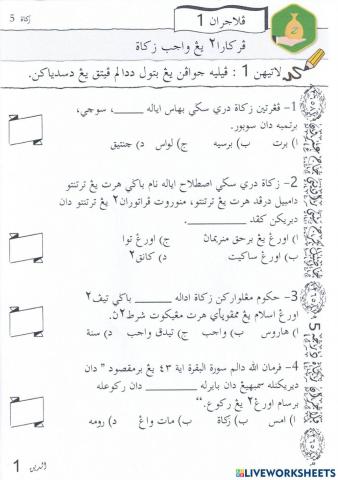 زكاة 5
ڤلاجران 1
ڤركارا٢ يڠ واجب زكاة
لاتيهن 1 : ڤيليه جواڤن يڠ بتول ددالم ڤيتق يڠ دسدياكن.
1- ڤڠرتين زكاة دري سڬي بهاس اياله _____، سوچي،
برتمبه دان سوبور.
ا) برت ب) برسيه ج) لواس د) چنتيق
2- زكاة دري سڬي اصطلاح اياله نام باݢي هرت يڠ ترتنتو
دامبيل درڤد هرت يڠ ترتنتو، منوروت ڤراتورن٢ يڠ ترتنتو دان
دبريكن كڤد _________.
ا) اورڠ يڠ برحق منريمان ج) اورڠ توا
ب) اورڠ ساكيت د) كانق٢
3- حكوم مڠلواركن زكاة اداله _______ باݢي تيڤ٢
اورڠ اسلام يڠ ممڤوڽاءي هرت مڠيكوت شرط٢ڽ.
ا) هاروس ب) واجب ج) تيدق واجب د) سنة
4- فرمان الله دالم سورة البقرة اية ٤٣ يڠ برمقصود " دان
ديريكنله سمبهيڠ دان بايرله _________ دان ركوعله
برسام اورڠ٢ يڠ ركوع."
ا) امس ب) زكاة ب) مات واڠ د) رومه
الدين 1
LIVEWORKSHEETS